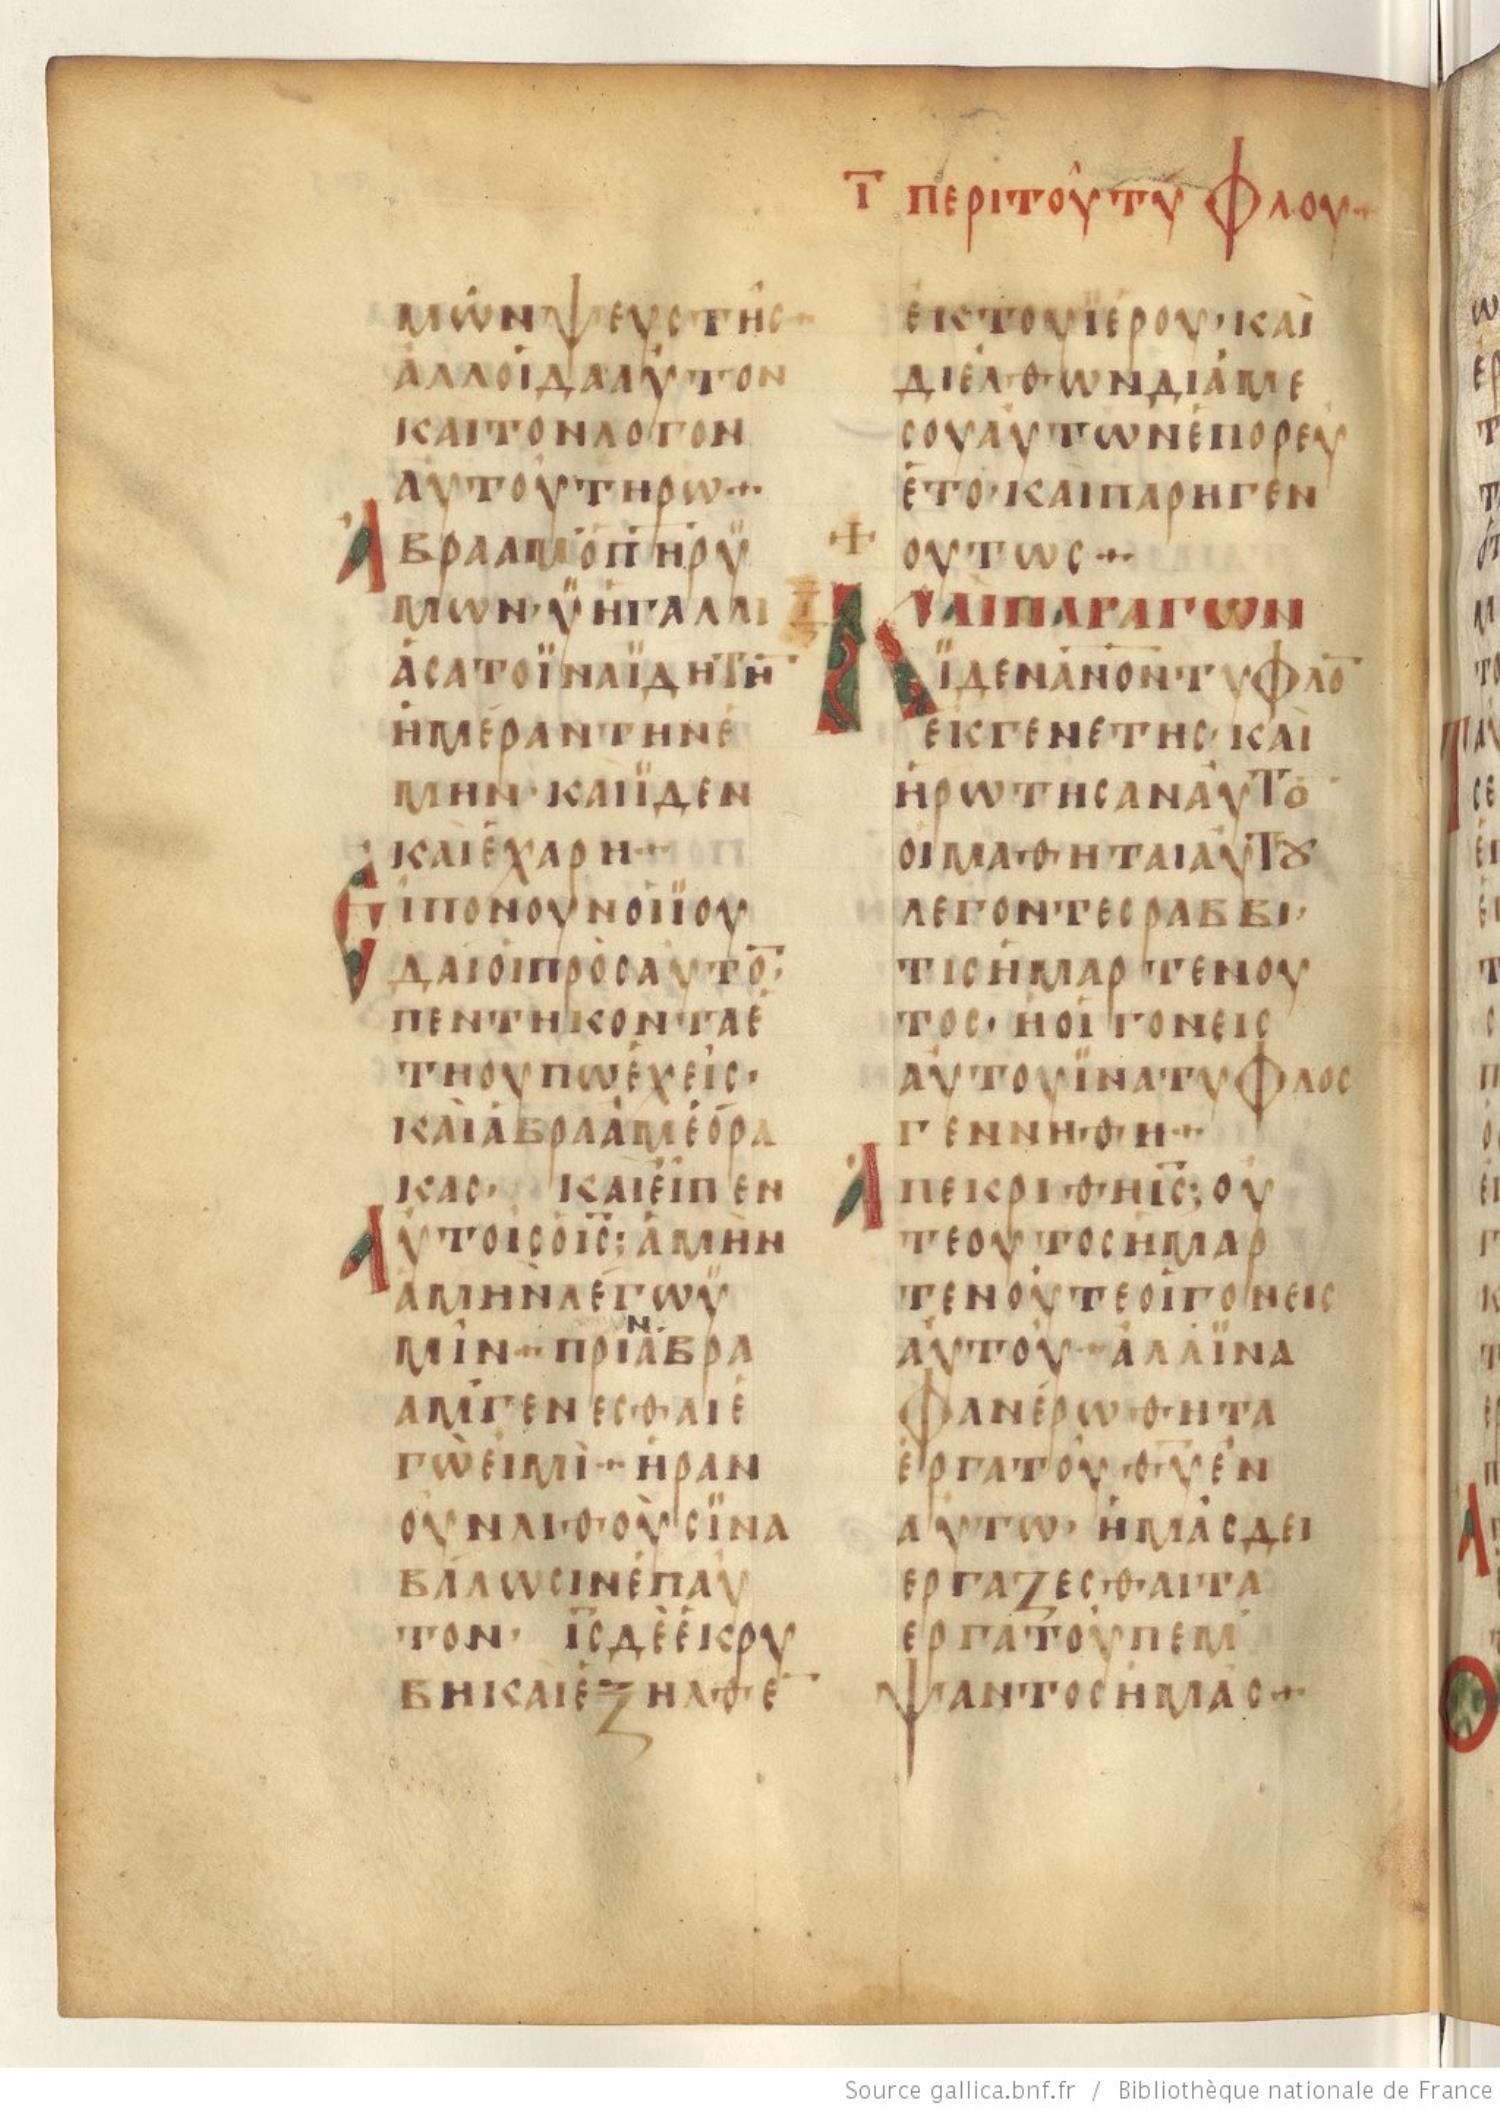 Ι ΠΕΡΙ ΤΟΥ ΤΥΦΛΟΥ
ΜΩΝ ΨΕΥΣΤΗΣ
ΑΛΛΟΙΔΑ ΑΥΤΟΝ
ΚΑΙ ΤΟΝ ΛΟΓΟΝ
ΑΥΤΟΥ ΤΗΡΩ
ΑΒΡΑΑΜ Ο ΠΗΡ Ϋ
ΜΩΝ· ΫΗΓΑΛΛΙ
ΑΣΑΤΟ ΪΝΑ ΪΔΗ ΤΗΝ
ΗΜΕΡΑΝ ΤΗΝ Ε
ΜΗΝ· ΚΑΙ ΪΔΕΝ
ΚΑΙ ΕΧΑΡΗ
ΕΙΠΟΝ ΟΥΝ ΟΙ ΪΟΥ
ΔΑΙΟΙ ΠΡΟΣ ΑΥΤΟ̅·
ΠΕΝΤΗΚΟΝΤΑ Ε
ΤΗ ΟΥΠΩ ΕΧΕΙΣ·
ΚΑΙ ΑΒΡΑΑΜ ΕΟΡΑ
ΚΑΣ· ΚΑΙ ΕΙΠΕΝ
ΑΥΤΟΙΣ Ο Ι̅Σ̅· ΑΜΗΝ
ΑΜΗΝ ΛΕΓΩ Ϋ
ΜΙΝ ΠΡΙΝ ΑΒΡΑ
ΑΜ ΓΕΝΕΣΘΑΙ Ε
ΓΩ ΕΙΜΙ ΗΡΑΝ
ΟΥΝ ΛΙΘΟΥΣ ΪΝΑ
ΒΑΛΩΣΙΝ ΕΠ ΑΥ
ΤΟΝ· Ι̅Σ̅ ΔΕ ΕΚΡΥ
ΒΗ ΚΑΙ ΕΞΗΛΘΕ̅
ΕΚ ΤΟΥ ΪΕΡΟΥ· ΚΑΙ
ΔΙΕΛΘΩΝ ΔΙΑ ΜΕ
ΣΟΥ ΑΥΤΩΝ ΕΠΟΡΕΥ
ΕΤΟ· ΚΑΙ ΠΑΡΗΓΕΝ
ΟΥΤΩΣ
ΚΑΙ ΠΑΡΑΓΩΝ
ΪΔΕΝ Α̅Ν̅Ο̅Ν̅ ΤΥΦΛΟ̅
ΕΚ ΓΕΝΕΤΗΣ· ΚΑΙ
ΗΡΩΤΗΣΑΝ ΑΥΤΟ̅
ΟΙ ΜΑΘΗΤΑΙ ΑΥΤȢ
ΛΕΓΟΝΤΕΣ ΡΑΒΒΙ·
ΤΙΣ ΗΜΑΡΤΕΝ ΟΥ
ΤΟΣ· Η ΟΙ ΓΟΝΕΙΣ
ΑΥΤΟΥ ΪΝΑ ΤΥΦΛΟΣ
ΓΕΝΝΗΘΗ
ΑΠΕΚΡΙΘΗ Ι̅Σ̅· ΟΥ
ΤΕ ΟΥΤΟΣ ΗΜΑΡ
ΤΕΝ ΟΥΤΕ ΟΙ ΓΟΝΕΙΣ
ΑΥΤΟΥ ΑΛΛ ΪΝΑ
ΦΑΝΕΡΩΘΗ ΤΑ
ΕΡΓΑ ΤΟΥ Θ̅Υ̅ ΕΝ
ΑΥΤΩ· ΗΜΑΣ ΔΕΙ
ΕΡΓΑΖΕΣΘΑΙ ΤΑ
ΕΡΓΑ ΤΟΥ ΠΕΜ
ΨΑΝΤΟΣ ΗΜΑΣ
Source gallica.bnf.fr / Bibliothèque nationale de France